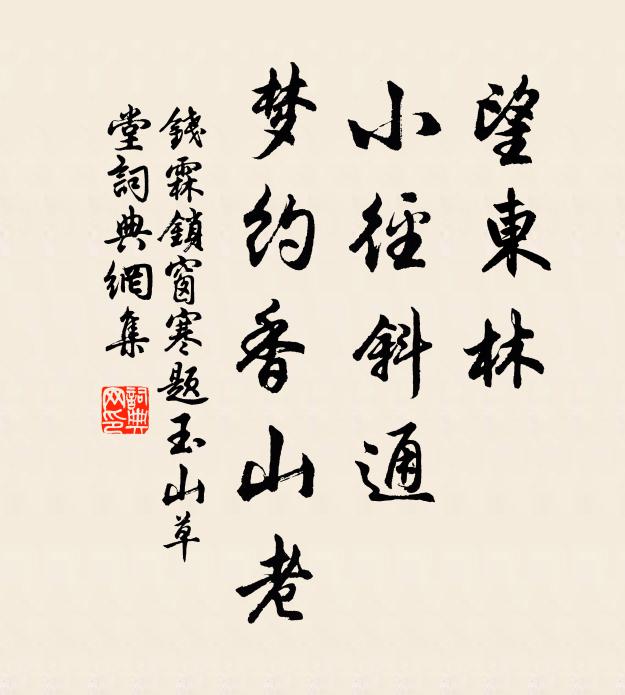 望東林
小徑斜通
梦約香山老
錢霖鎖窗寒题玉山草
堂詞典網集
詞典
网印